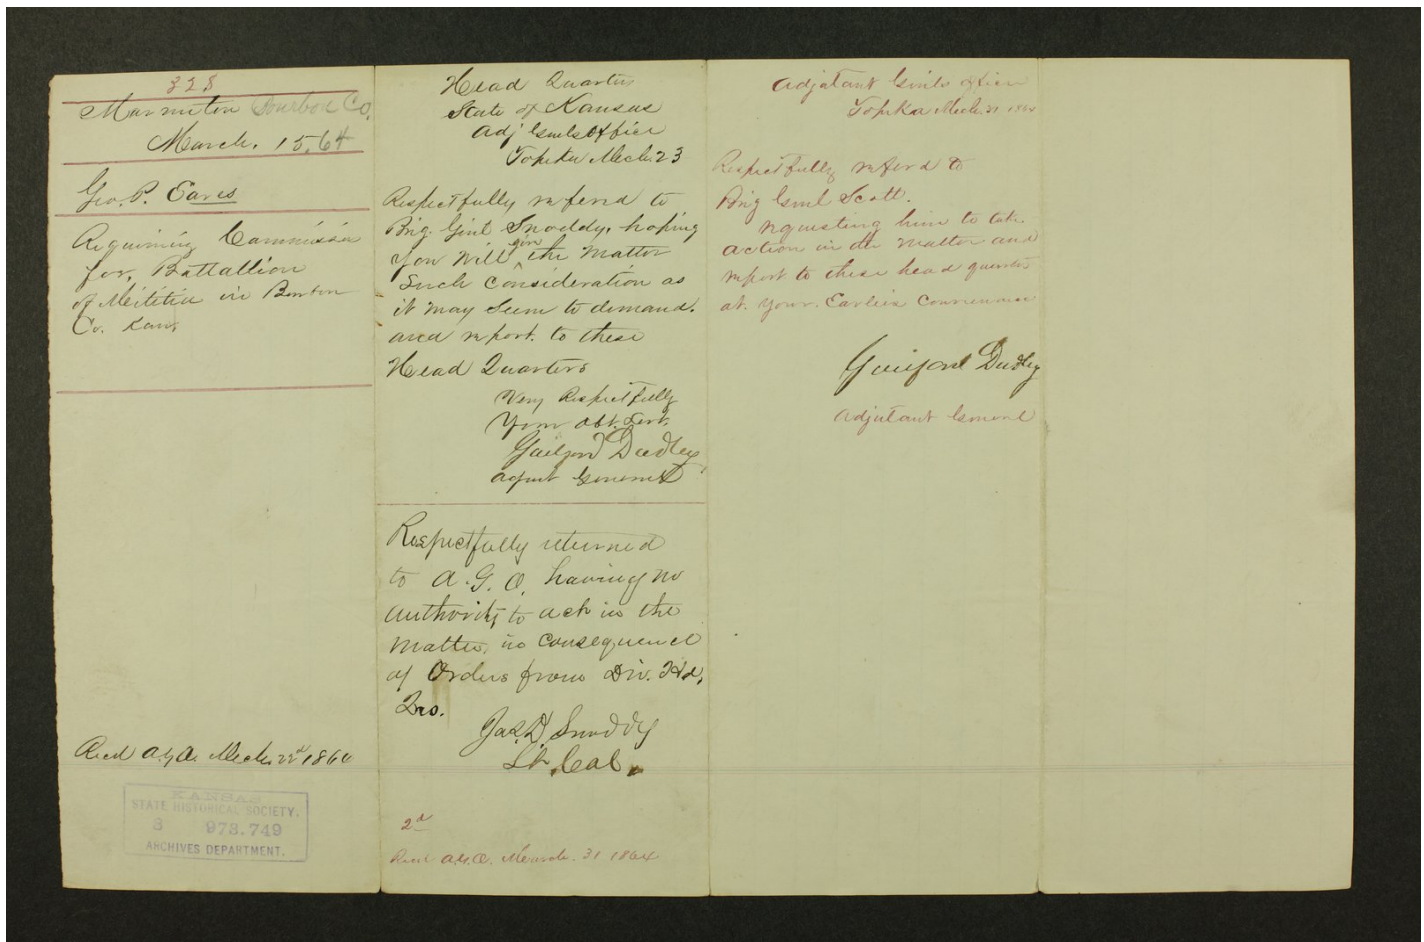 328
Marmiton Bourbon Co.
March. 15. 64
Geo. P. Eaves
Requiring Commission
for, Battallion
of Melitia in Bourbon
Co. Kan,
Recd A.G.O. Mch. 22d 1864
KANSAS
STATE HISTORICAL SOCIETY.
3 973.749
ARCHIVES DEPARTMENT.
Head Quarters
State of Kansas
Adj Genls Office
Topeka Mch. 23
Respectfully referred to
Brig. Genl Snoddy, hoping
you will give the matter
such consideration as
it may seem to demand.
and report to these
Head Quarters
Very Respectfully
Your Obt. Servt.
Guilford Dudley
Adjut General
Respectfully returned
to A. G. O. having no
authority to act in the
matter, in consequence
of Orders from Div. Hd,
Qrs.
Jas. D Snoddy
Lt. Col.
2d
Recd A.G.O. March. 31 1864
Adjutant Genls office
Topeka Mch. 31 1864
Respectfully referd to
Brig Genl Scott.
requesting him to take
action in the matter and
report to these head quarters
at your. Earliest Convenience
Guilford Dudley
Adjutant General